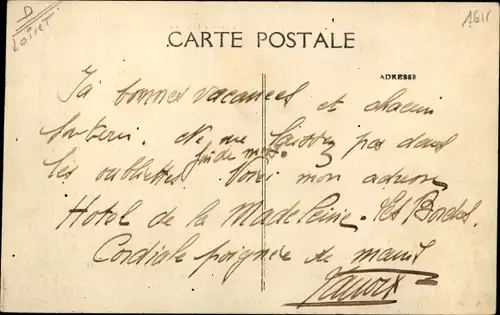 D
Loiret
1615
CARTE POSTALE
ADRESSE
bonnes vacances et chacun
Ne me laissez pas dans
les oubliettes. Voici mon adresse
Hotel de la Madeleine. Les Bordes.
Cordiale poignée de mains